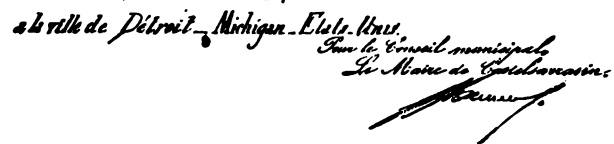 à la ville de Détroit _ Michigan _ Etats-Unis.
Pour le Conseil municipal,
Le Maire de Castelsarrasin: